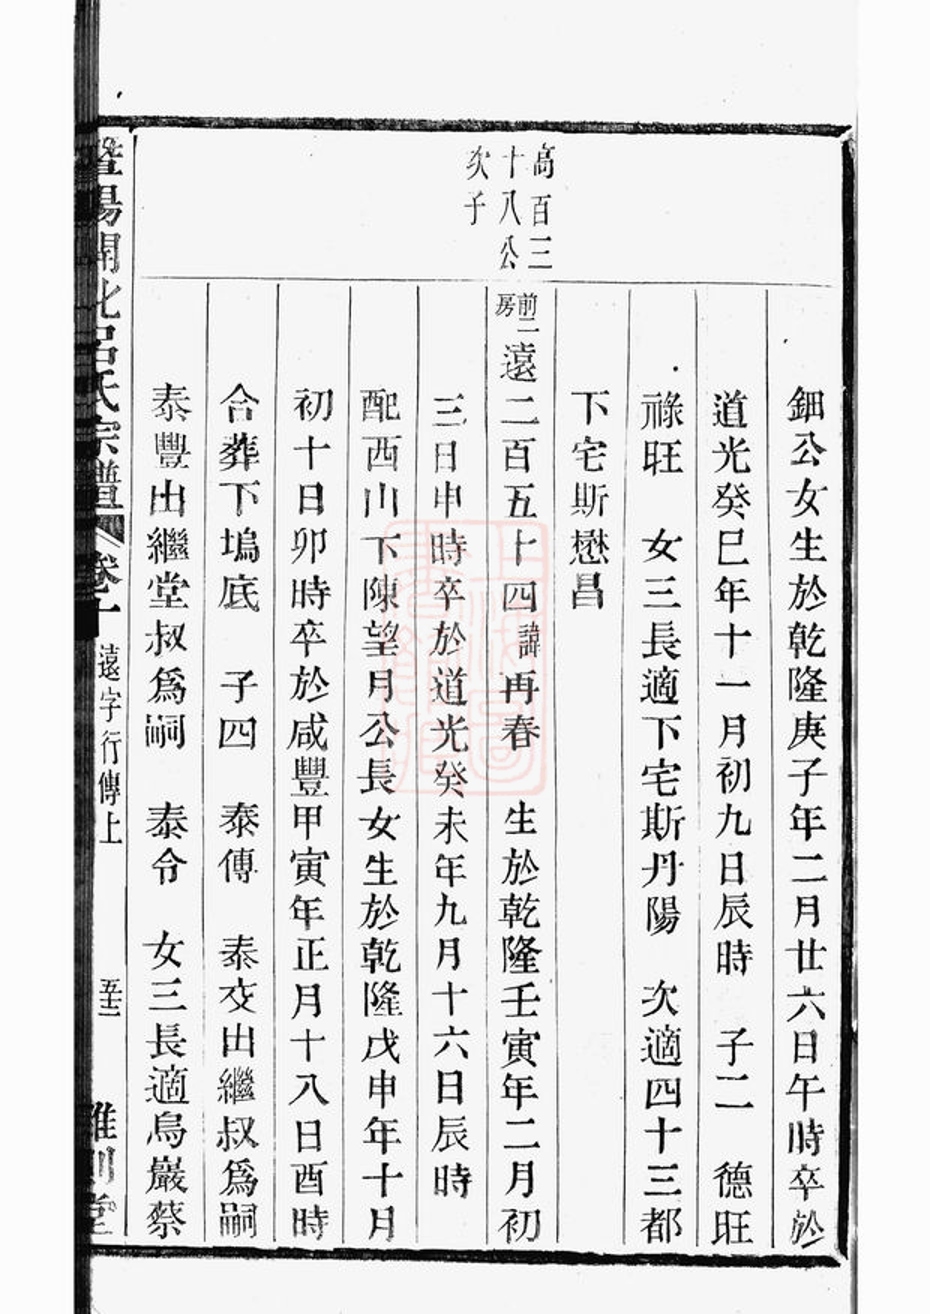 鈿公女生於乾隆庚子年二月廿六日午時卒於
道光癸巳年十一月初九日辰時　子二　德旺
祿旺　女三長適下宅斯丹陽　次適四十三都
下宅斯懋昌
高百三
十八公
次子
前二房遠二百五十四諱再春　生於乾隆壬寅年二月初
三日申時卒於道光癸未年九月十六日辰時
配西山下陳望月公長女生於乾隆戊申年十月
初十日卯時卒於咸豐甲寅年正月十八日酉時
合葬下塢底　子四　泰傳　泰交出繼叔爲嗣
泰豐出繼堂叔爲嗣　泰令　女三長適烏巖蔡
暨陽開化呂氏宗譜
遠字行傳上